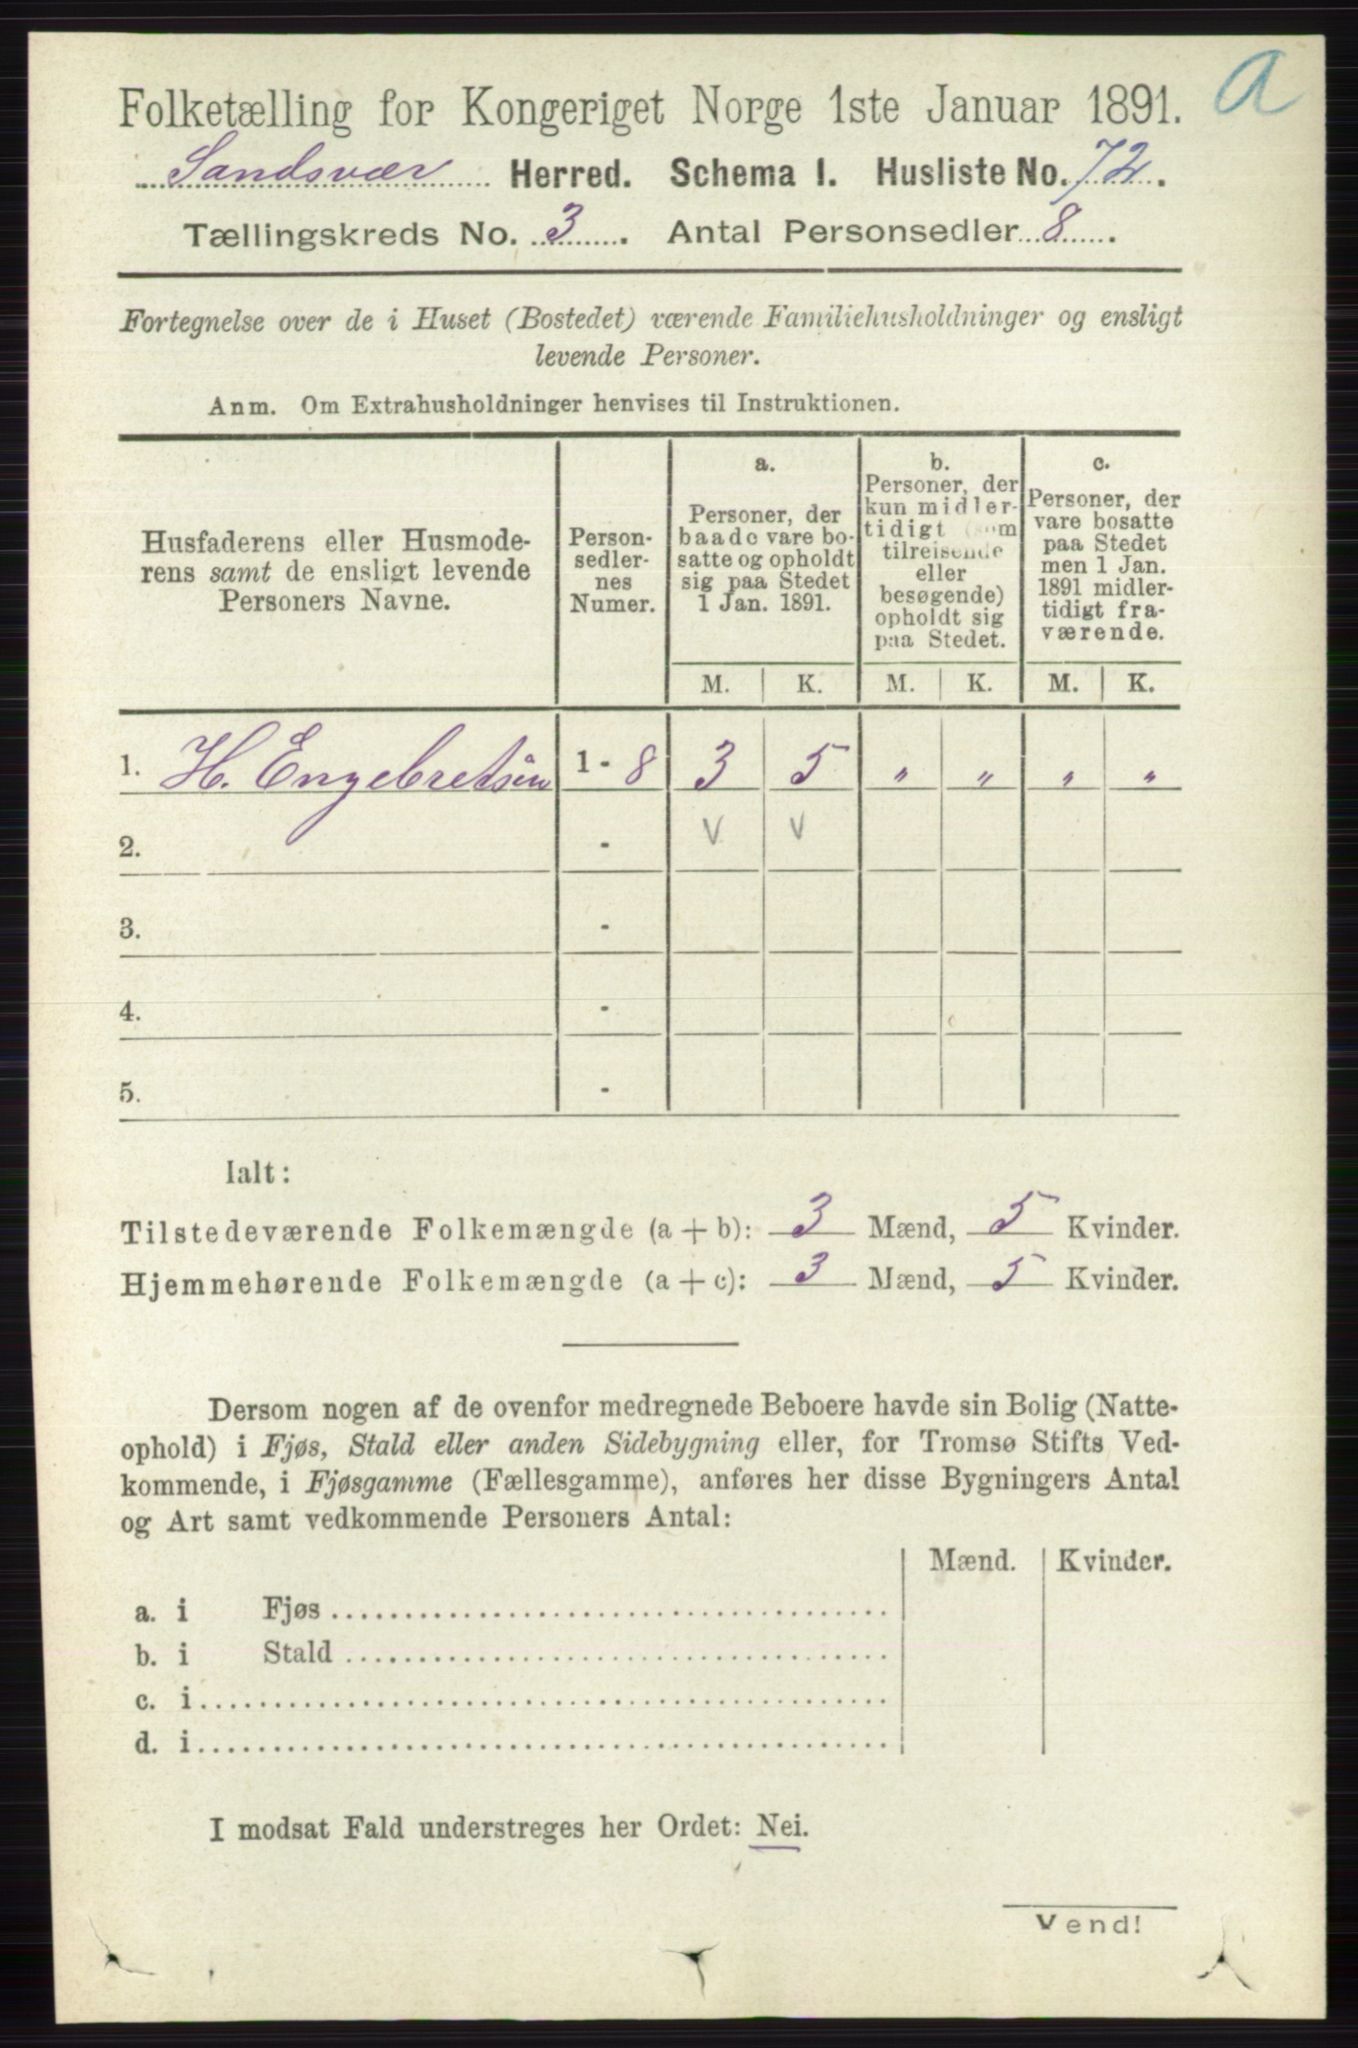 a
Folketælling for Kongeriget Norge 1ste Januar 1891.
Sandsvær Herred. Schema I. Husliste No. 72.
Tællingskreds No. 3. Antal Personsedler 8.
Fortegnelse over de i Huset (Bostedet) værende Familiehusholdninger og ensligt
levende Personer.
Anm. Om Extrahusholdninger henvises til Instruktionen.
Husfaderens eller Husmode-
rens samt de ensligt levende
Personers Navne.
Person-
sedler-
nes
Numer.
a.
Personer, der
baade vare bo-
satte og opholdt
sig paa Stedet
1 Jan. 1891.
b.
Personer, der
kun midler-
tidigt (som
tilreisende
eller
besøgende)
opholdt sig
paa Stedet.
c.
Personer, der
vare bosatte
paa Stedet
men 1 Jan.
1891 midler-
tidigt fra-
værende.
M. K. M. K. M. K.
1. H. Engebretsen 1 - 8 3 5 " " " "
2. - v v
3. -
4. -
5. -
Ialt:
Tilstedeværende Folkemængde (a + b): 3 Mænd, 5 Kvinder.
Hjemmehørende Folkemængde (a + c): 3 Mænd, 5 Kvinder.
Dersom nogen af de ovenfor medregnede Beboere havde sin Bolig (Natte-
ophold) i Fjøs, Stald eller anden Sidebygning eller, for Tromsø Stifts Ved-
kommende, i Fjøsgamme (Fællesgamme), anføres her disse Bygningers Antal
og Art samt vedkommende Personers Antal:
Mænd. Kvinder.
a. i Fjøs
b. i Stald
c. i
d. i
I modsat Fald understreges her Ordet: Nei.
Vend!